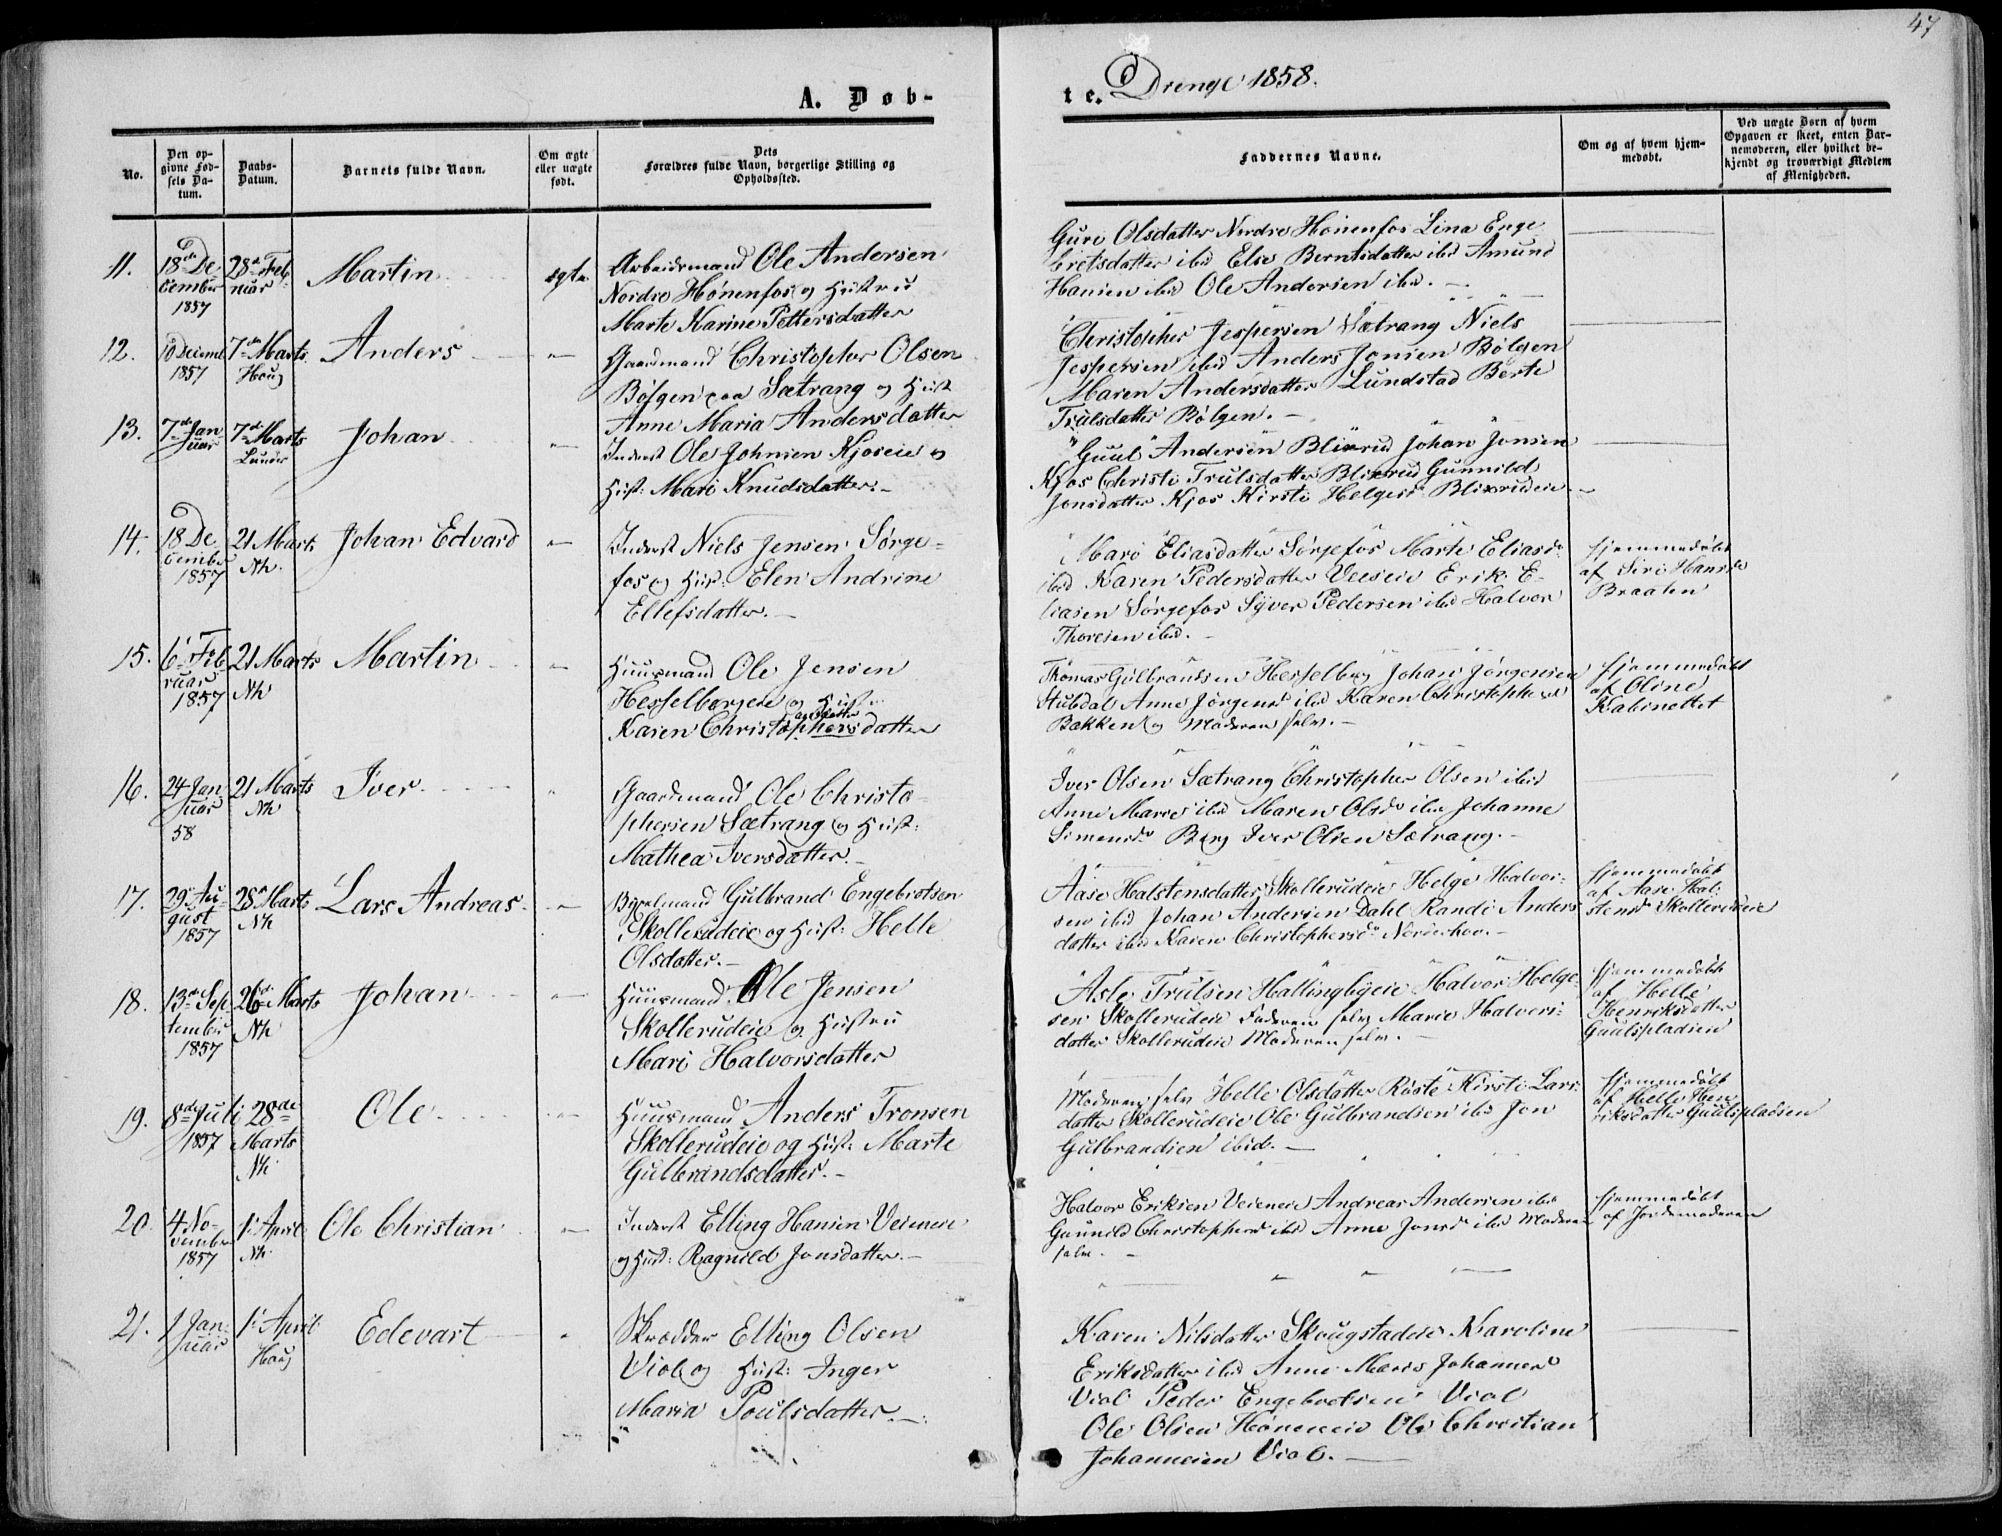 47
A. Døb-
te. Drenge 1858.
No.
Den op-
givne Fød-
sels Da-
tum.
Daabs-
Datum.
Barnets fulde Navn.
Om ægte
eller uægte
født.
Dets
Forældres fulde Navn, borgerlige Stilling og
Opholdssted.
Faddernes Navne.
Om og af hvem hjem-
medøbt.
Ved uægte Børn af hvem
Opgaven er skeet, enten Bar-
nemoderen, eller hvilket be-
kjendt og troværdigt Medlem
af Menigheden.
11.
18de De-
cember
1857
28de Feb
ruar
Martin
ægte
Arbeidsmand Ole Andersen
Nordre Hønenfos og Hustru
Marte Karine Pettersdatter
Guri Olsdatter Nordre Hønenfos Lina Enge
bretsdatter ibid Else Berntsdatter ibid Amund
Hansen ibid Ole Andersen ibid. -
12.
10 Decemb
1857
7de Marts
Houg
Anders
"
Gaardmand Christopher Olsen
Bølgen paa Sætrang og Hust
Anne Maria Andersdatter
Christopher Jespersen Sætrang Niels
Jespersen ibid Anders Jonsen Bølgen
Maren Andersdatter Lundstad Berte
Trulsdatter Bølgen. -
13.
7de Jan
uar
7de Marts
Lunder
Johan
"
Inderst Ole Johnsen Kjoseie og
Hust: Mari Knudsdatter. -
Guul Andersen Blixrud Johan Jonsen
Kjos Christi Trulsdatter Blixrud Gunnild
Jonsdatter Kjos Kirsti Helgesd Blixrudeie -
14.
18 De
cember
1857
21 Marts
Nh.
Johan Edvard
"
Inderst Niels Jensen Sørge-
fos og Hust: Elen Andrine
Ellefsdatter. -
Mari Eliasdatter Sørgefos Marte Eliasdr
ibid Karen Pedersdatter Veeseie Erik E-
liasen Sørgefos Syver Pedersen ibid Halvor
Thoresen ibid. -
Hjemmedøbt
af Siri Hansdr
Braaten
15.
6 Feb
ruar
1857
21 Marts
Nh
Martin
"
Huusmand Ole Jensen
Hesselbergeie og Hustru
Karen Christophersdatter
Thomas Gulbrandsen Hesselberg Johan Jørgensen
Stubdal Anne Jørgensd ibid Karen Christophersd
Bakken og Moderen selv. -
Hjemmedøbt
af Oline
Kabinettet
16.
24 Jan
uar
58
21 Marts
Nh
Iver
"
Gaardmand Ole Christo-
phersen Sætrang og Hust:
Mathea Iversdatter. -
Iver Olsen Sætrang Christopher Olsen ibid
Anne Marie ibid Maren Olsdr ibid Johanne
Simensdr Berg Iver Olsen Sætrang. -
17.
29 Au-
gust
1857
28 Marts
Nh
Lars Andreas
"
Bygselmand Gulbrand Engebretsen
Skollerudeie og Hust: Helle
Olsdatter. -
Aase Halstensdatter Skollerudeie Helge Halvor-
sen ibid Johan Andersen Dahl Randi Anders
datter ibid Karen Christophersdr Norderhov. -
Hjemmedøbt
af Aase Hal-
stensdr Skollerudeie
18.
13de Sep
tember
1857
26de Marts
Nh
Johan
"
Huusmand Ole Jensen
Skollerudeie og Hustru
Mari Halvorsdatter
Asle Trulsen Hallingbyeie Halvor Helge-
sen Skollerudeie Faderen selv Marie Halvors-
datter Skollerudeie Moderen selv. -
Hjemmedøbt
af Helle
Henriksdatter
Guulspladsen
19.
8de Juli
1857
28de
Marts
Nh
Ole
"
Huusmand Anders Tronsen
Skollerudeie og Hust: Marte
Gulbrandsdatter. -
Moderen selv Helle Olsdatter Røste Kirsti Lars
datter Skollerudeie Ole Gulbrandsen ibid Jon
Gulbrandsen ibid. -
Hjemmedøbt
af Helle Hen-
riksdatter Guulspladsen
20.
4 No-
vember
1857
1 April
Nh.
Ole Christian
"
Inderst Elling Hansen Veieneie
og Hust: Ragnild Jonsdatter. -
Halvor Eriksen Veieneie Andreas Andersen ibid
Gunnild Christophersd ibid Anne Jonsd ibid Moderen
selv. -
Hjemmedøbt
af Jordemoderen
21.
1 Jan-
uar
1 April
Houg
Edevart
"
Skrædder Elling Olsen
Viol og Hust: Inger
Maria Poulsdatter. -
Karen Nilsdatter Skougstadeie Karoline
Eriksdatter ibid Anne Maria Johannesd
Viol Peder Engebretsen Viol
Ole Olsen Høneneie Ole Christian
Johannesen Viol. -